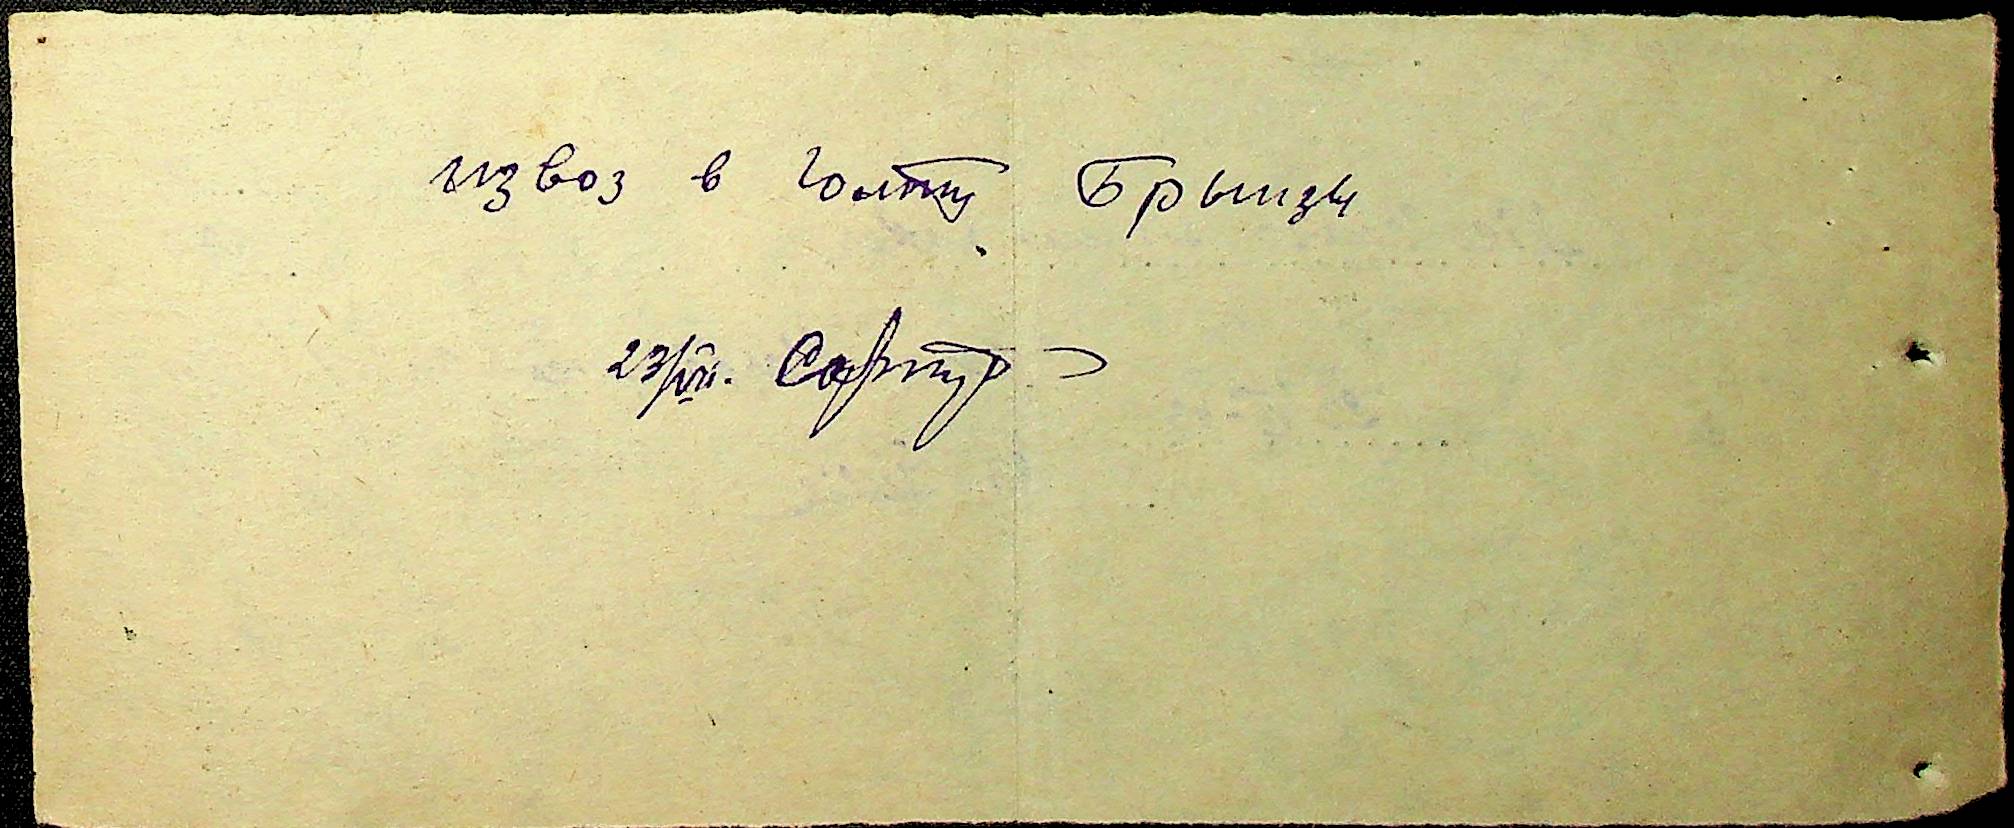 извоз в Голту Брынзы
23/VII.